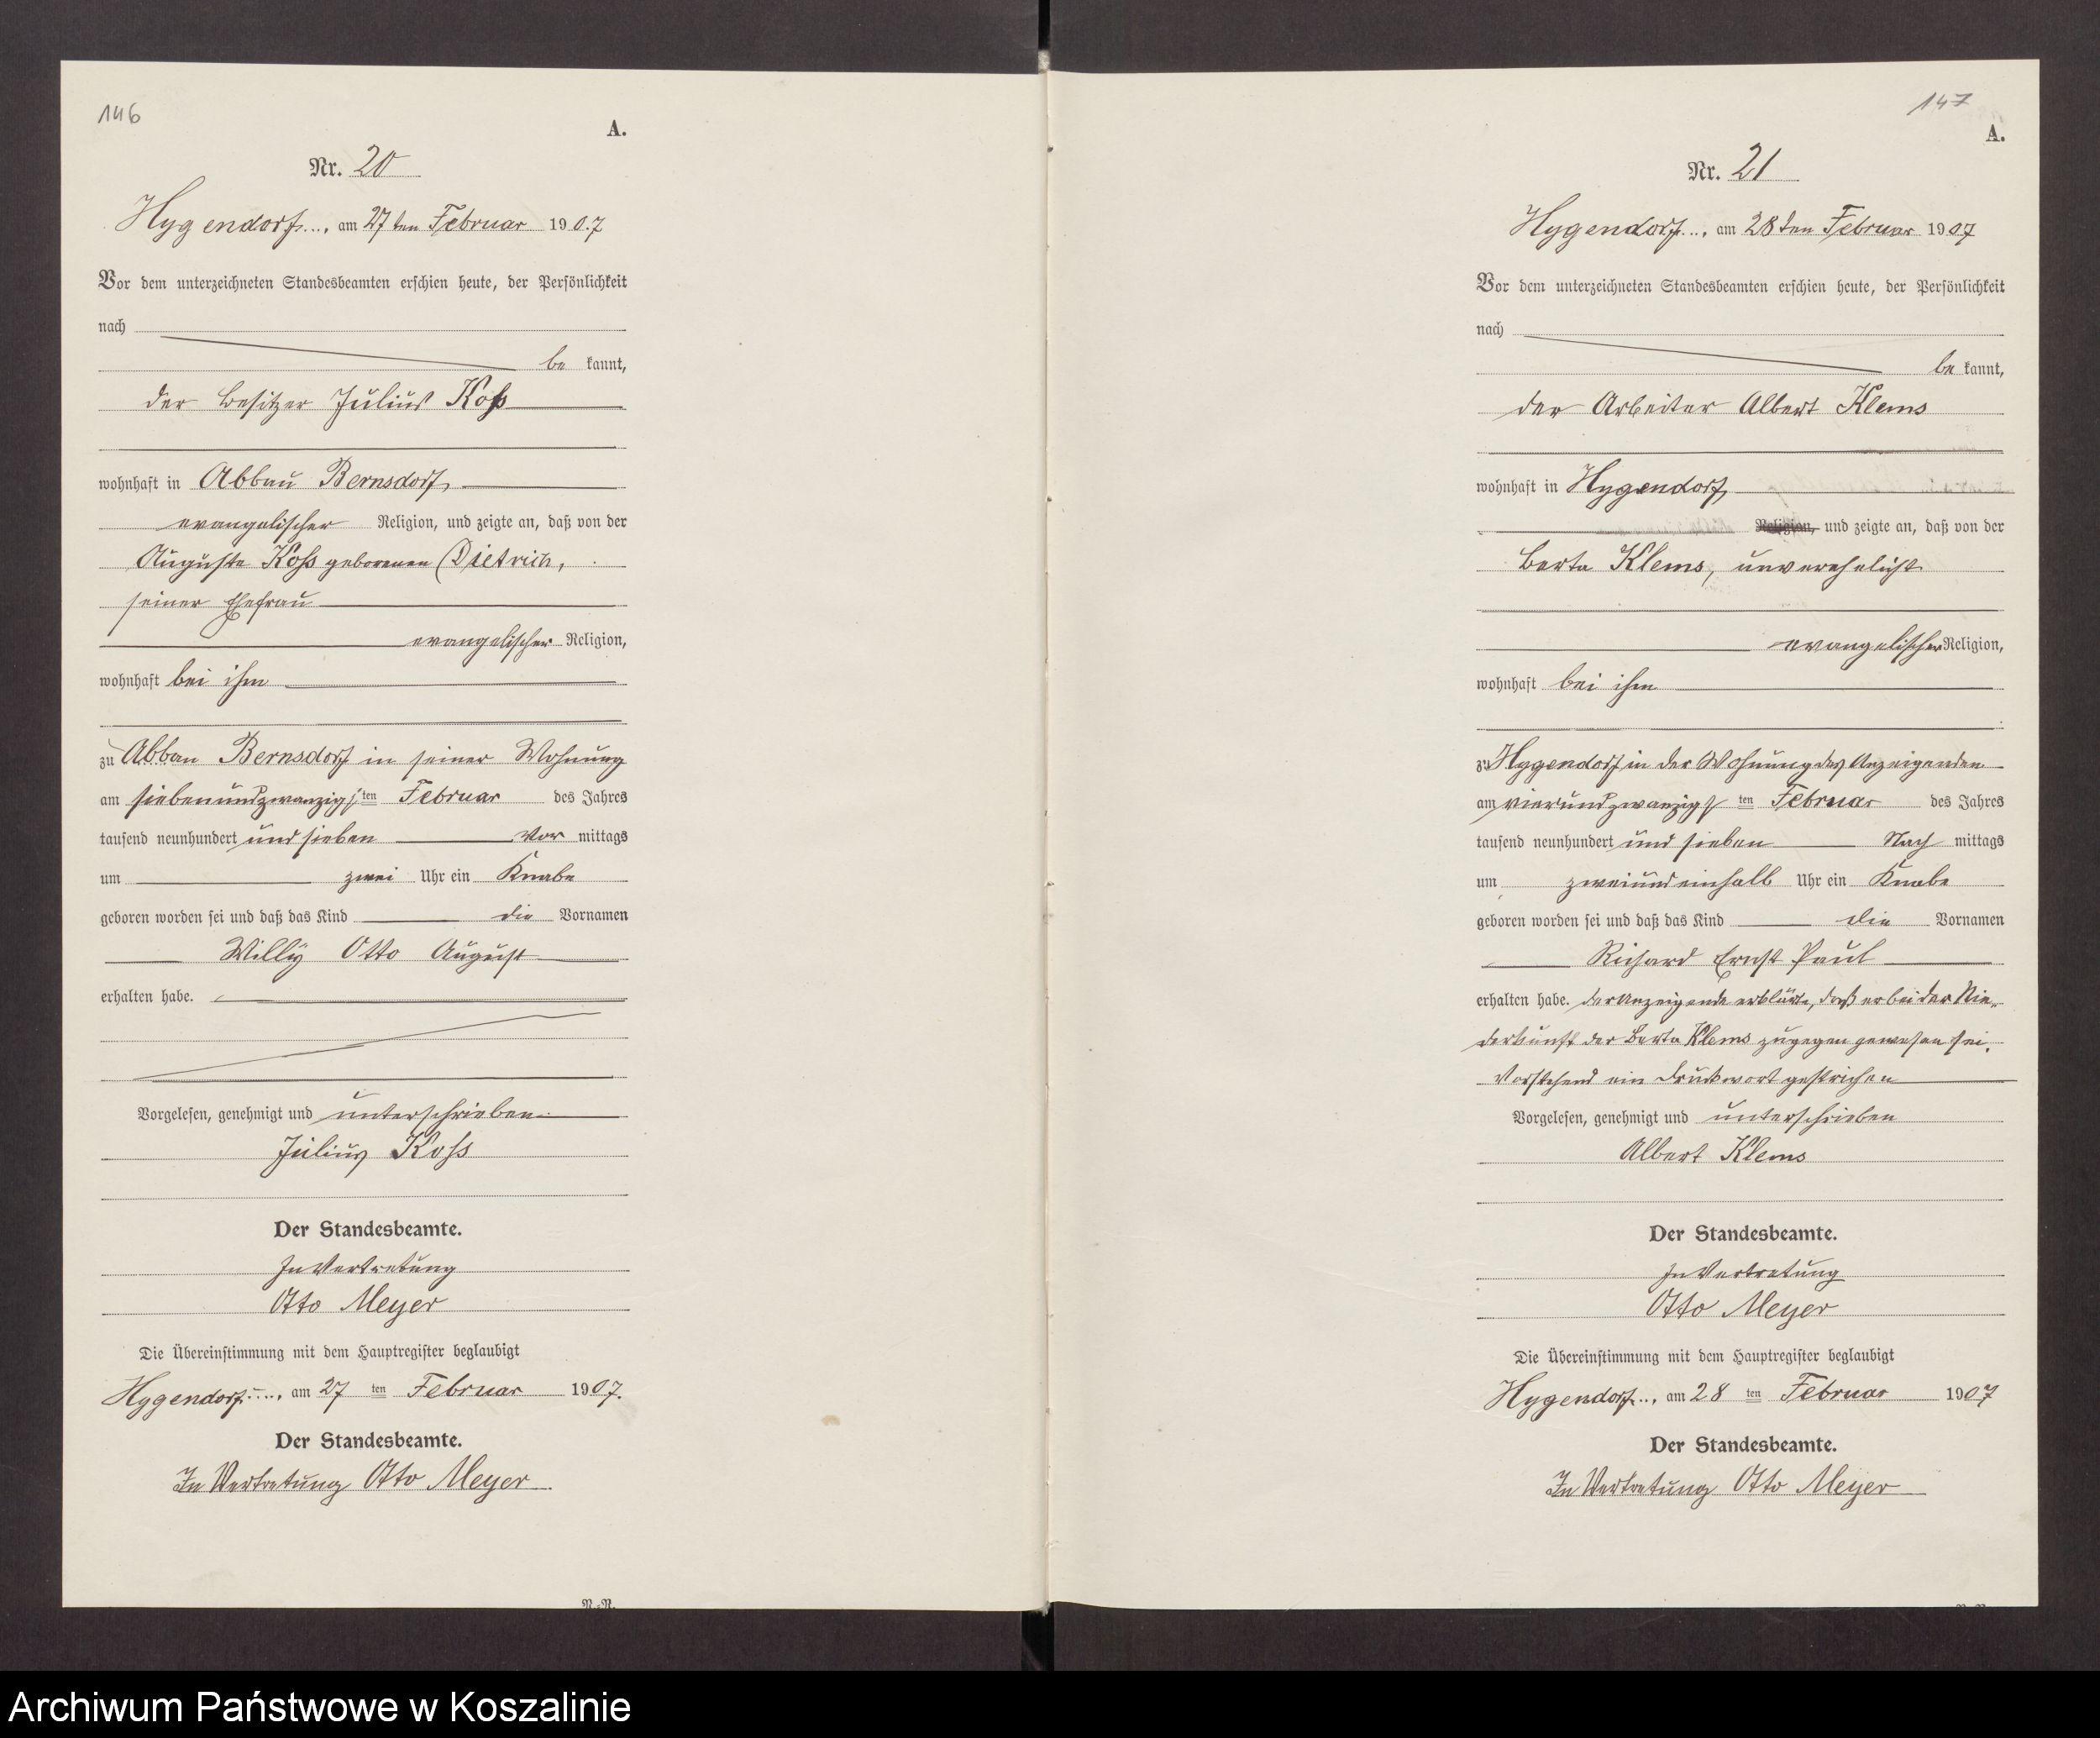 146
A.
Nr. 20
Hygendorf, am 27ten Februar 1907
Vor dem unterzeichneten Standesbeamten erschien heute, der Persönlichkeit
nach
be kannt,
der Besitzer Julius Koß
wohnhaft in Abbau Bernsdorf,
evangelischer Religion, und zeigte an, daß von der
Auguste Koß geborenen Dietrich,
seiner Ehefrau
evangelischer Religion,
wohnhaft bei ihm
zu Abbau Bernsdorf in seiner Wohnung
am siebenundzwanzigsten Februar des Jahres
tausend neunhundert und sieben Vor mittags
um zwei Uhr ein Knabe
geboren worden sei und daß das Kind die Vornamen
Willy Otto August
erhalten habe.
Vorgelesen, genehmigt und unterschrieben
Julius Koß
Der Standesbeamte.
In Vertretung
Otto Meyer
Die Übereinstimmung mit dem Hauptregister beglaubigt
Hygendorf, am 27 ten Februar 1907.
Der Standesbeamte.
In Vertretung Otto Meyer
147
A.
Nr. 21
Hygendorf, am 28ten Februar 1907
Vor dem unterzeichneten Standesbeamten erschien heute, der Persönlichkeit
nach
be kannt,
der Arbeiter Albert Klems
wohnhaft in Hygendorf,
Religion, und zeigte an, daß von der
Berta Klems, unverehelicht
evangelischer Religion,
wohnhaft bei ihm
zu Hygendorf in der Wohnung des Anzeigenden
am vierundzwanzigsten Februar des Jahres
tausend neunhundert und sieben Nach mittags
um zweiundeinhalb Uhr ein Knabe
geboren worden sei und daß das Kind die Vornamen
Richard Ernst Paul
erhalten habe. Der Anzeigende erklärte, daß er bei der Nie-
derkunft der Berta Klems zugegen gewesen sei.
Vorstehend ein Druckwort gestrichen
Vorgelesen, genehmigt und unterschrieben
Albert Klems
Der Standesbeamte.
In Vertretung
Otto Meyer
Die Übereinstimmung mit dem Hauptregister beglaubigt
Hygendorf, am 28 ten Februar 1907
Der Standesbeamte.
In Vertretung Otto Meyer
Archiwum Państwowe w Koszalinie